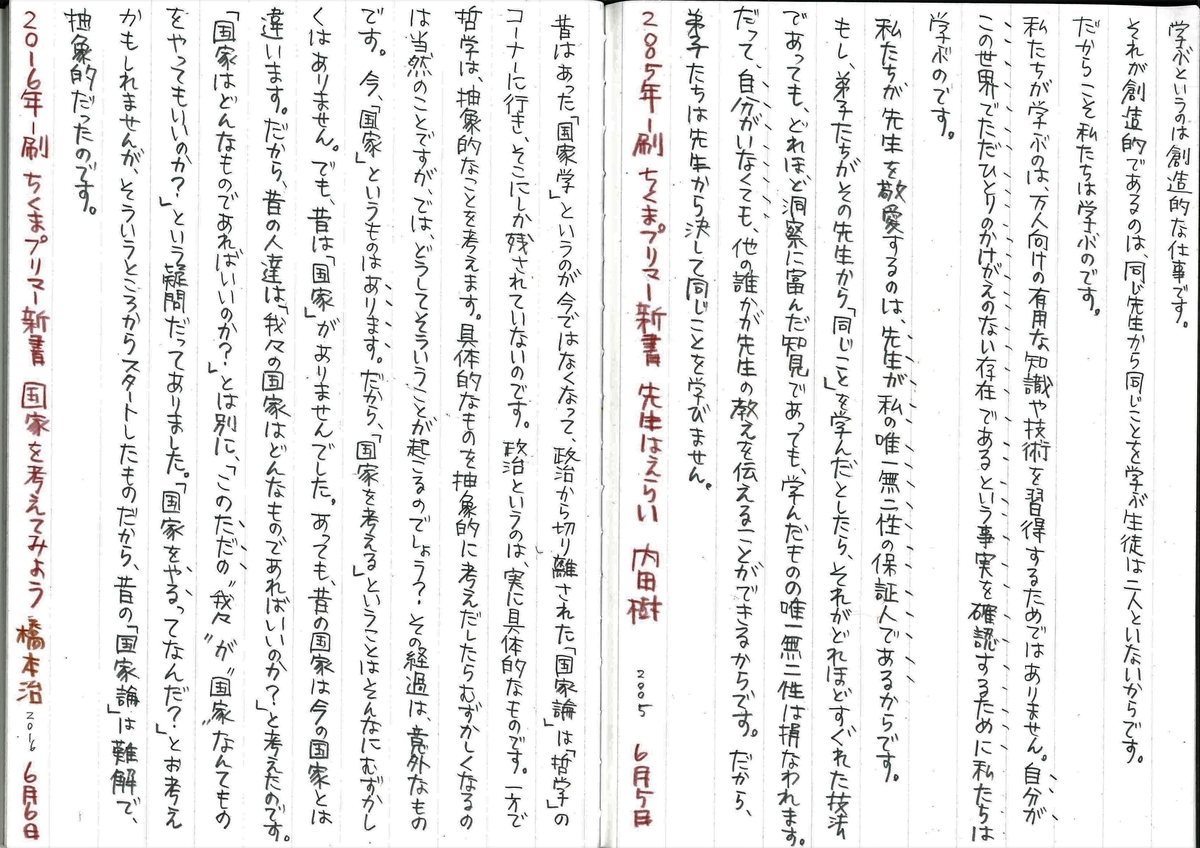 学ぶというのは創造的な仕事です。
それが創造的であるのは、同じ先生から同じことを学ぶ生徒は二人といないからです。
だからこそ私たちは学ぶのです。
私たちが学ぶのは、万人向けの有用な知識や技術を習得するためではありません。自分が
この世界でただひとりのかけがえのない存在であるという事実を確認するために私たちは
学ぶのです。
私たちが先生を敬愛するのは、先生が私の唯一無二性の保証人であるからです。
もし、弟子たちがその先生から「同じこと」を学んだとしたら、それがどれほどすぐれた技法
であっても、どれほど洞察に富んだ知見であっても、学んだものの唯一無二性は損なわれます。
だって、自分がいなくても、他の誰かが先生の教えを伝えることができるからです。だから、
弟子たちは先生から決して同じことを学びません。
2005年一刷 ちくまプリマー新書 先生はえらい 内田樹 2005 6月5日
昔はあった「国家学」というのが今ではなくなって、政治から切り離された「国家論」は「哲学」の
コーナーに行き、そこにしか残されていないのです。政治というのは、実に具体的なものです。一方で
哲学は、抽象的なことを考えます。具体的なものを抽象的に考えだしたらむずかしくなるの
は当然のことですが、では、どうしてそういうことが起こるのでしょう?その経過は、意外なもの
です。今、「国家」というものはあります。だから、「国家を考える」ということはそんなにむずかし
くはありません。でも、昔は「国家」がありませんでした。あっても、昔の国家は今の国家とは
違います。だから、昔の人達は「我々の国家はどんなものであればいいのか?」と考えたのです。
「国家はどんなものであればいいのか?」とは別に、「このただの〝我々〟が〝国家〟なんてもの
をやってもいいのか?」という疑問だってありました。「国家をやるってなんだ?」とお考え
かもしれませんが、そういうところからスタートしたものだから、昔の「国家論」は難解で、
抽象的だったのです。
2016年一刷 ちくまプリマー新書 国家を考えてみよう 橋本治 2016 6月6日